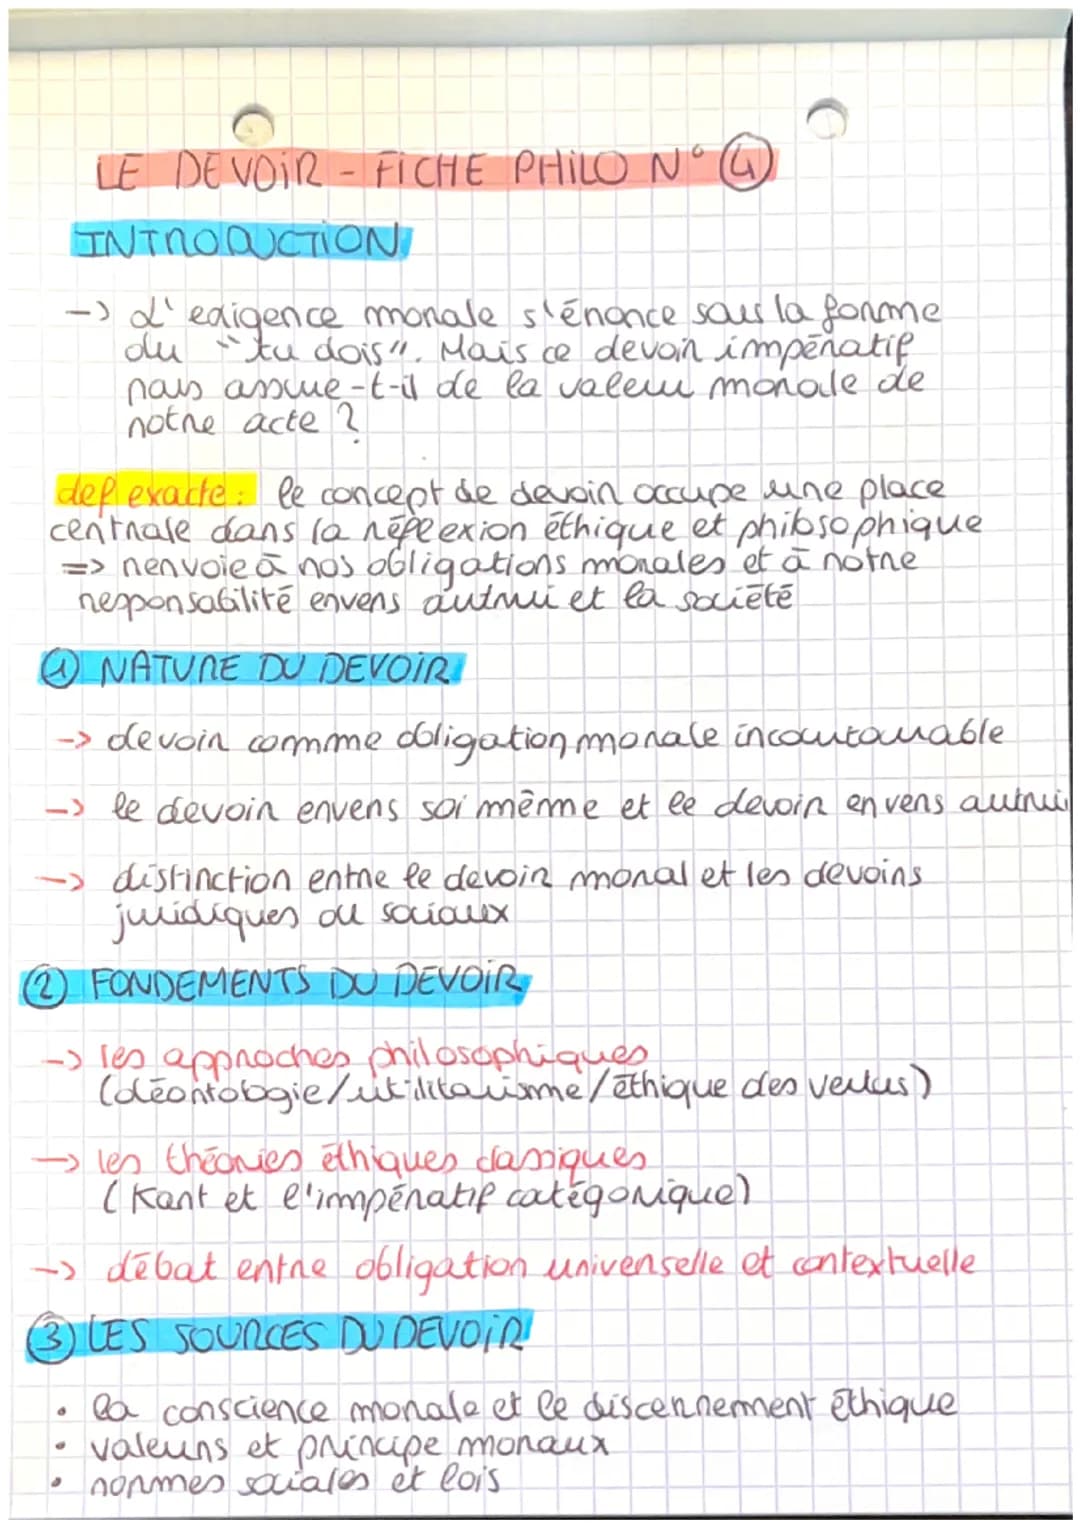 LE DEVOIR - FICHE PHILO N° 4
INTRODUCTION
-> L'exigence morale s'énonce sous la forme
du "tu dois". Mais ce devoir impératif
nous assure-t-il de la valeur morale de
notre acte ?
def exacte : le concept de devoir occupe une place
centrale dans la réflexion éthique et philosophique
=> renvoie à nos obligations morales et à notre
responsabilité envers autrui et la société
① NATURE DU DEVOIR
-> devoir comme obligation morale incoutournable
-> le devoir envers soi même et le devoir envers autrui
-> distinction entre le devoir moral et les devoirs
juridiques ou sociaux
② FONDEMENTS DU DEVOIR
-> les approches philosophiques
(déontologie/utilitarisme/éthique des vertus)
-> les théories éthiques classiques
(Kant et l'impératif catégorique)
-> débat entre obligation universelle et contextuelle
③ LES SOURCES DU DEVOIR
• la conscience morale et le discernement éthique
• valeurs et principe moraux
• normes sociales et lois